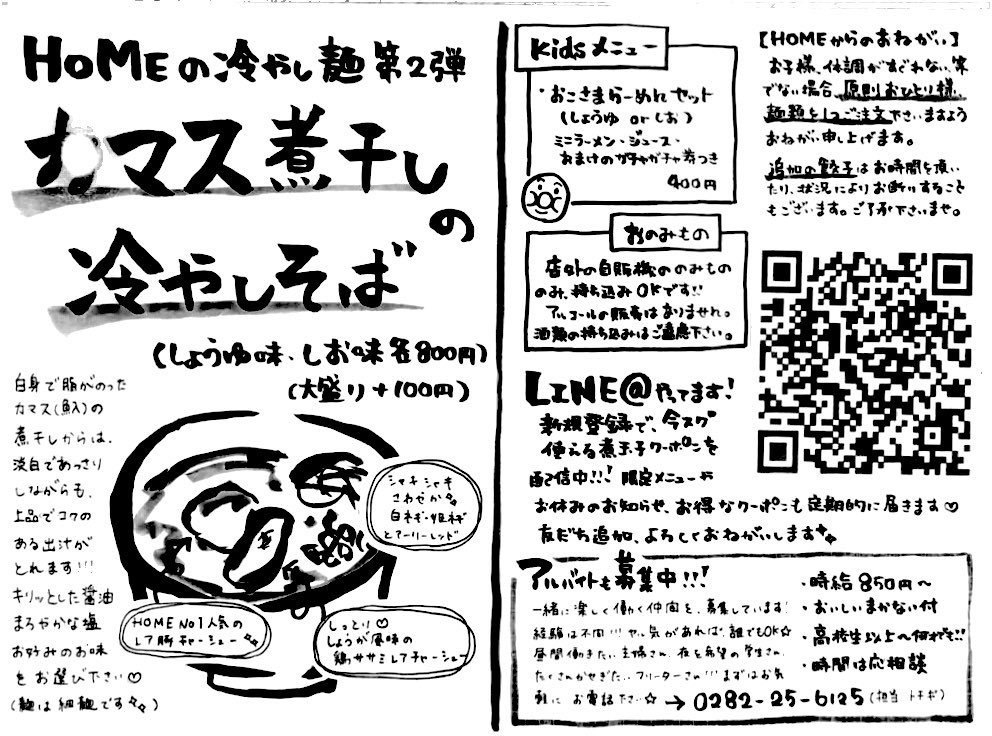 HOMEの冷やし麺第2弾
カマス煮干し
の
冷やしそば
(しょうゆ味、しお味各800円)
(大盛り+100円)
白身で脂がのった
カマス(魚)の
煮干しからは、
淡白であっさり
しながらも、
上品でコクの
ある出汁が
とれます!!!
キリッとした醤油
まろやかな塩
お好みのお味
をお選び下さい♡
(麺は細麺です)
シャキシャキ
さわやか
白ネギ・姫ネギ
とアーリーレッド
HOME No1人気の
レア豚チャーシュー
しっとり♡
しょうが風味の
鶏ササミレアチャーシュー
Kidsメニュー
・おこさまらーめんセット
(しょうゆ or しお)
ミニラーメン・ジュース・
おまけのガチャガチャ券つき
400円
おのみもの
店外の自販機ののみもの
のみ、持ち込みOKです!!
アルコールの販売はありません。
酒類の持ち込みはご遠慮下さい。
【HOMEからのおねがい】
お子様、体調がすぐれない等
でない場合、原則おひとり様、
麺類を1つご注文下さいますよう
おねがい申し上げます。
追加の餃子はお時間を頂い
たり、状況によりお断りすること
もございます。ご了承下さいませ。
LINE@やってます!
新規登録で、今スグ
使える煮玉子クーポンを
配信中!!! 限定メニューや
お休みのお知らせ、お得なクーポンも定期的に届きます♡
友だち追加、よろしくおねがいします
アルバイトも募集中!!!
一緒に楽しく働く仲間を、募集しています!
経験は不問!!! やる気があれば、誰でもOK☆
昼間働きたい主婦さん、夜を希望の学生さん、
たくさんかせぎたいフリーターさん!!! まずはお気
軽に お電話下さい☆ → 0282-25-6125 (担当 トチギ)
・時給850円〜
・おいしいまかない付
・高校生以上〜何れでも!!
・時間は応相談